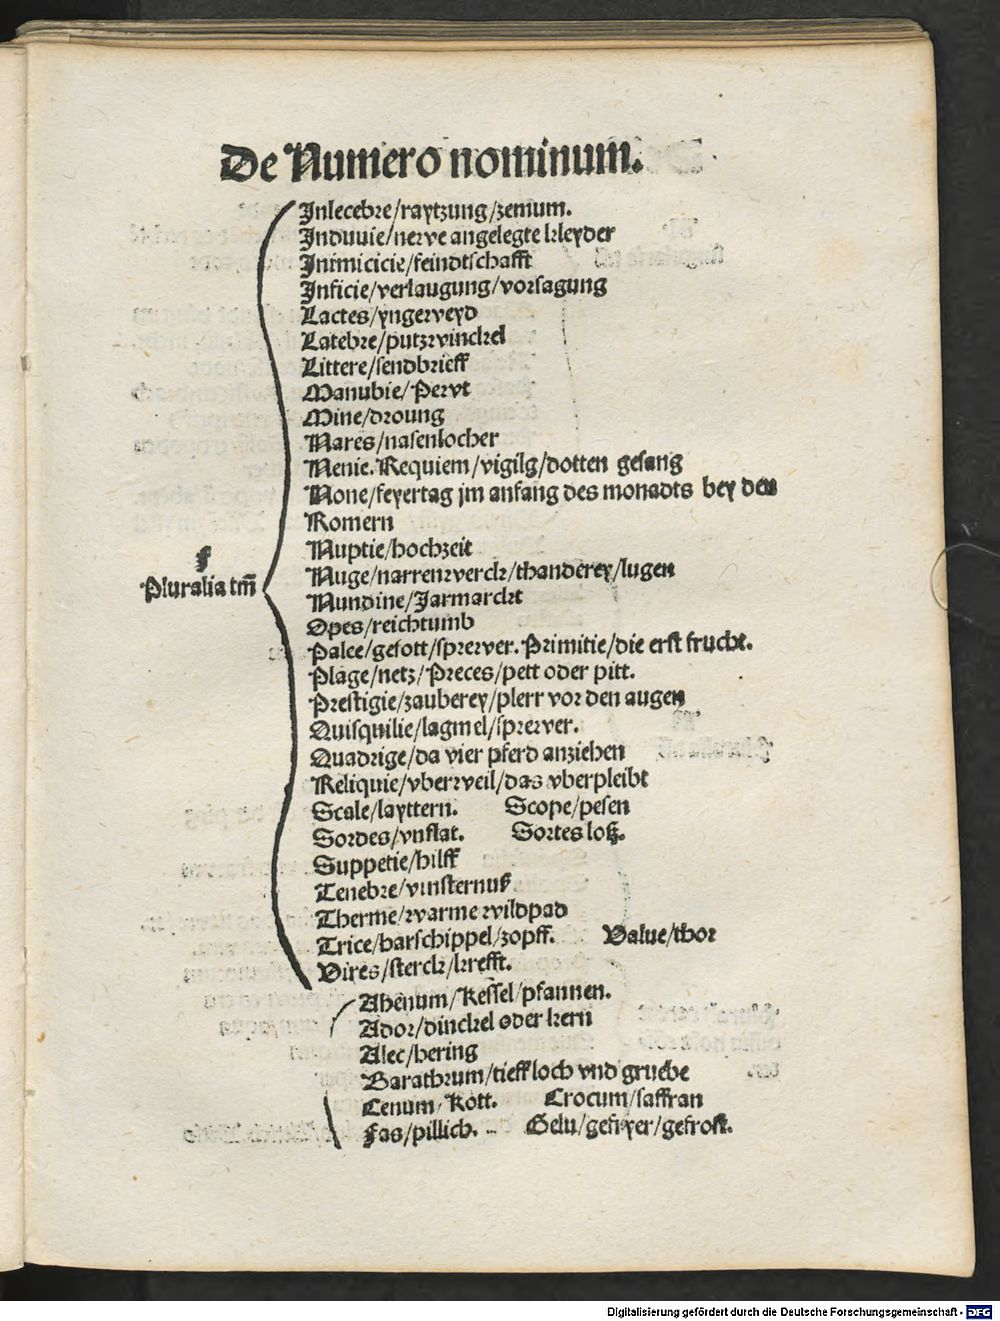 De Numero nominum.
Inlecebre/raytzung/zemum.
Induuie/newe angelegte kleyder
Inimicicie/feindtschafft
Inficie/verlaugung/vorsagung
Lactes/yngeweyd
Latebre/putzwinckel
Littere/sendbrieff
Manubie/Pewt
Mine/droung
Nares/nasenlocher
Nenie. Requiem/vigilg/dotten gesang
None/feyertag jm anfang des monadts bey den
Romern
Nuptie/hochzeit
f
Pluralia tm̄
Nuge/narrenwerck/thanderey/lugen
Nundine/Jarmarckt
Opes/reichtumb
Palee/gesott/sprewer. Primitie/die erst frucht.
Plage/netz/Preces/pett oder pitt.
Prestigie/zauberey/plerr vor den augen
Quisquilie/lagmel/sprewer.
Quadrige/da vier pferd anziehen
Reliquie/vberweil/das vberpleibt
Scale/layttern. Scope/pesen
Sordes/vnflat. Sortes loß.
Suppetie/hilff
Tenebre/vinsternuß
Therme/warme wildpad
Trice/harschippel/zopff. Value/thor
Vires/sterck/krefft.
Ahenum/Kessel/pfannen.
Ador/dinckel oder kern
Alec/hering
Barathrum/tieff loch vnd gruebe
Cenum/Kott. Crocum/saffran
Fas/pillich. Gelu/gefryer/gefrost.
Digitalisierung gefördert durch die Deutsche Forschungsgemeinschaft - DFG